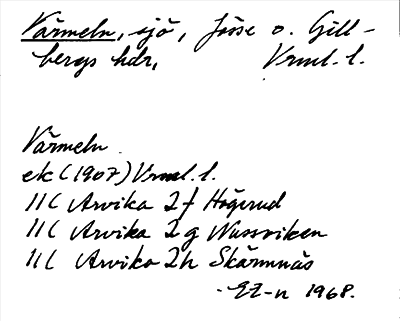 Värmeln, sjö, Jösse o. Gill-
bergs hdr, Vrml. l.
Värmeln
ek (1907) Vrml. l.
11C Arvika 2f Högerud
11C Arvika 2g Nussviken
11C Arvika 2h Skärmnäs
EZ-n 1968.